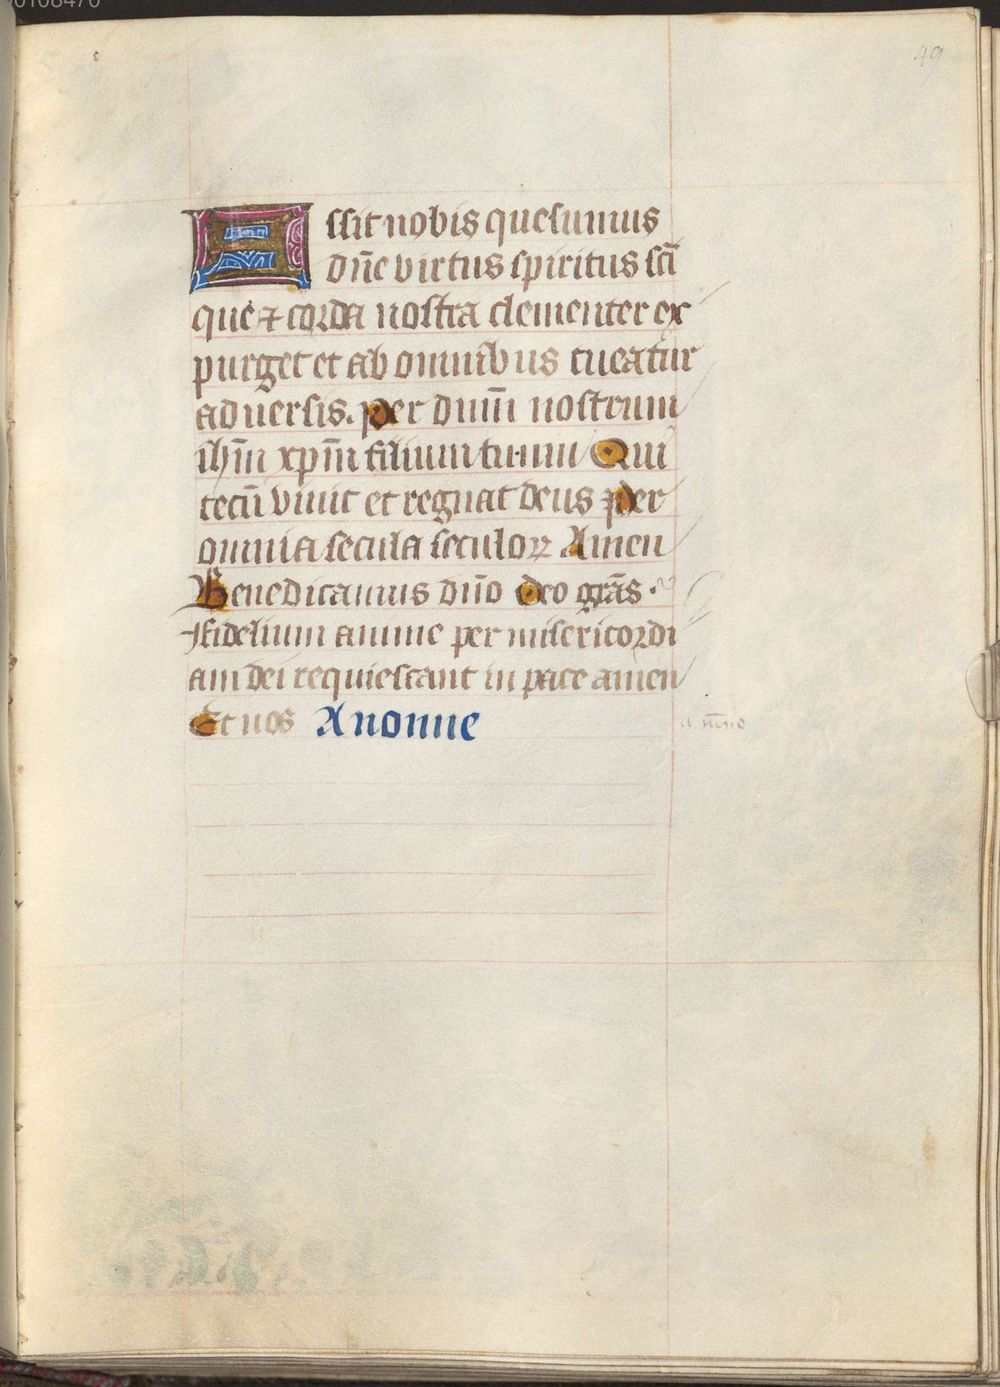 49
Assit nobis quesumus
dn̄e virtus spiritus scī
que ⁊ corda nostra clementer ex
purget et ab omnibus tueatur
aduersis. per dnm̄ nostrum
ihm̄ xpm̄ filium tuum Qui
tecū viuit et regnat deus per
omnia secula seculoꝝ Amen
Benedicamus dn̄o deo grās.
Fidelium anime per misericordi
am dei requiescant in pace amen
Et nos A nonne